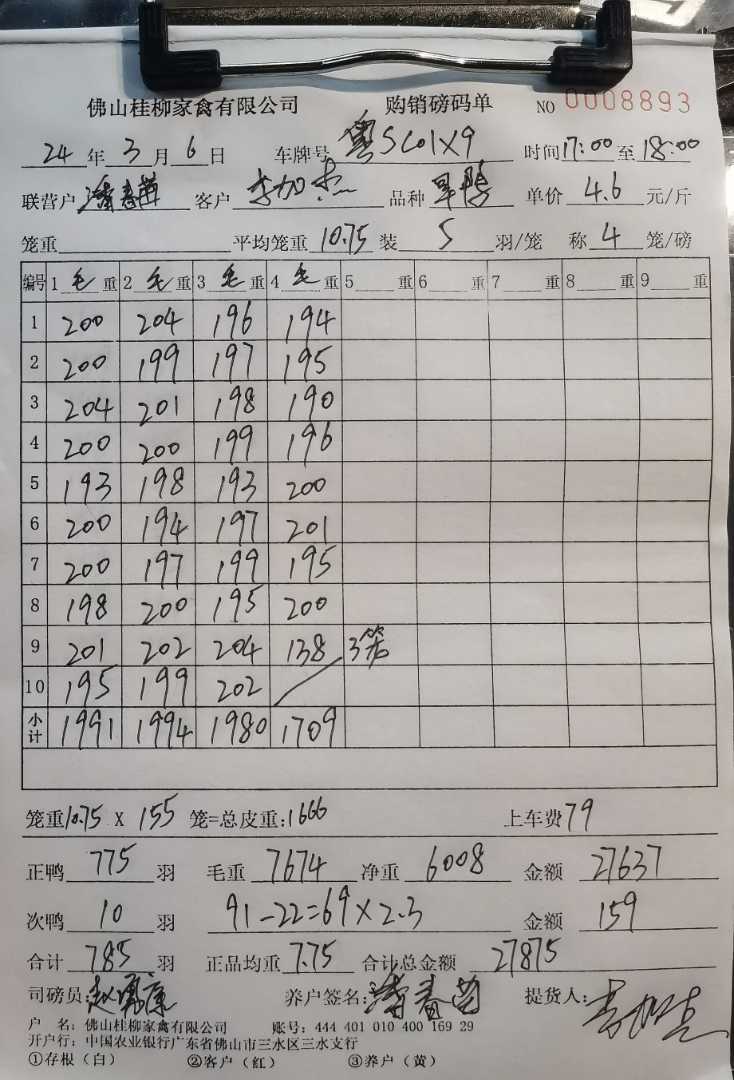 佛山桂柳家禽有限公司 购销磅码单 NO 0008893
24 年 3 月 6 日 车牌号 粤SC01X9 时间 17:00 至 18:00
联营户 潘春苗 客户 李加 品种 单价 4.6 元/斤
笼重 平均笼重 10.75 装 5 羽/笼 称 4 笼/磅
编号 1 毛 重 2 毛 重 3 毛 重 4 毛 重 5 重 6 重 7 重 8 重 9 重
1 200 204 196 194
2 200 199 197 195
3 204 201 198 190
4 200 200 199 196
5 193 198 193 200
6 200 194 197 201
7 200 197 199 195
8 198 200 195 200
9 201 202 204 138 3笼
10 195 199 202
小计 1991 1994 1980 1709
笼重10.75 X 155 笼=总皮重:1666 上车费79
正鸭 775 羽 毛重 7674 净重 6008 金额 27637
次鸭 10 羽 91-22=69×2.3 金额 159
合计 785 羽 正品均重 7.75 合计总金额 27875
司磅员: 养户签名: 潘春苗 提货人:
户 名: 佛山桂柳家禽有限公司 账号: 444 401 010 400 169 29
开户行: 中国农业银行广东省佛山市三水区三水支行
①存根（白） ②客户（红） ③养户（黄）